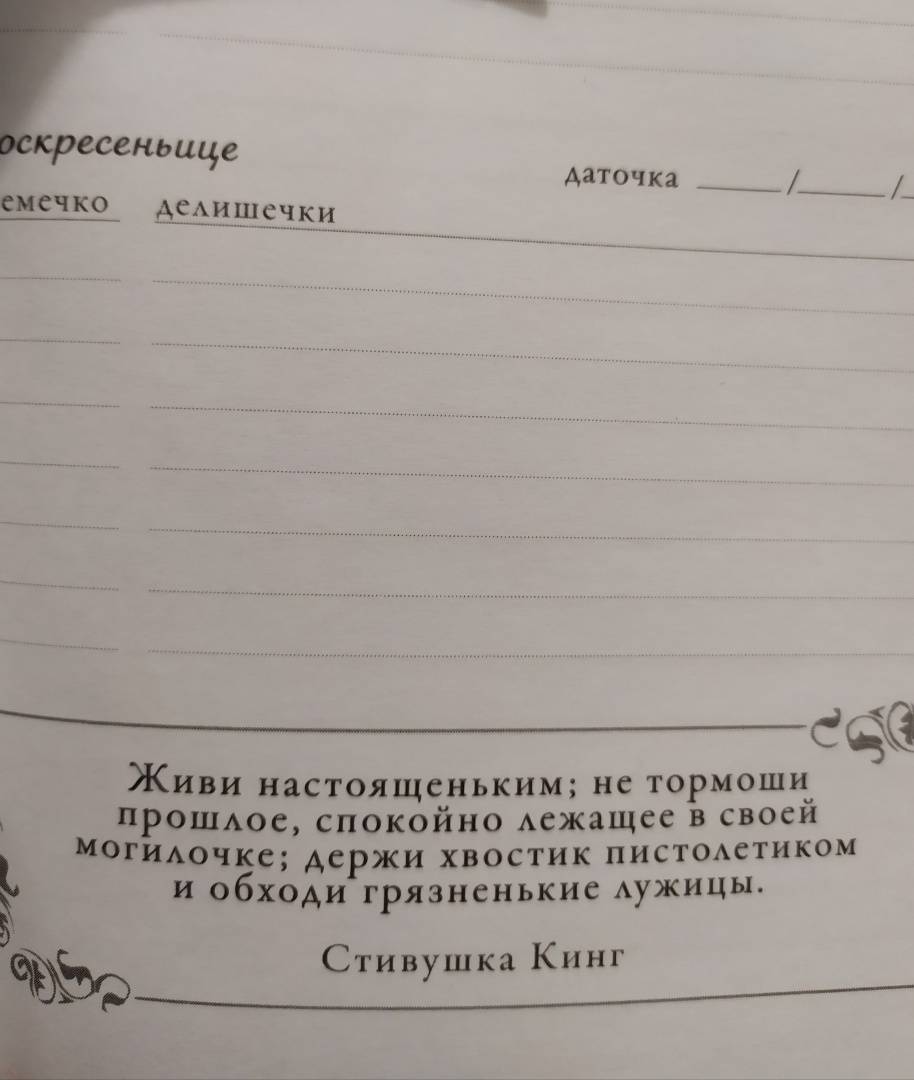 оскресеньице
даточка ____/____/_
емечко делишечки
Живи настоященьким; не тормоши
прошлое, спокойно лежащее в своей
могилочке; держи хвостик пистолетиком
и обходи грязненькие лужицы.
Стивушка Кинг